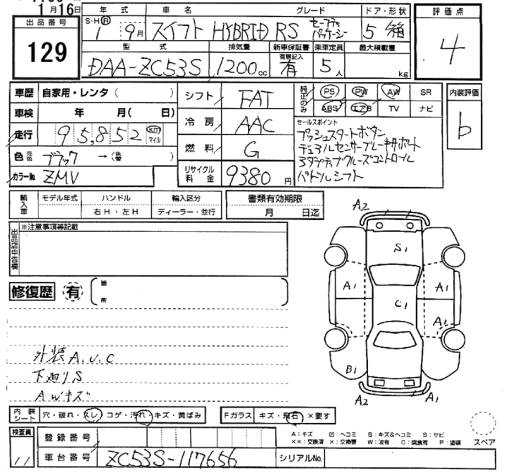 月16日
出品番号
129
年式 車名 グレード ドア・形状
S・H・R 1年9月 スイフト HYBRID RS セーフティパッケージ 5 箱
型式 排気量 新車保証書 乗車定員 最大積載量
有無記入
DAA-ZC53S 1200cc 有 5人 kg
評価点
4
車歴 自家用・レンタ( )
車検 年 月( 日)
走行 95,852 km マイル
色 元色 ブラック →(替 )
カラーNo. ZMV
シフト FAT
冷房 AAC
燃料 G
リサイクル料金 9380円
純正のみ
PS PW AW SR
ABS エアB TV ナビ
セールスポイント
プッシュスタートボタン
デュアルセンサーブレーキサポート
アダプティブクルーズコントロール
パドルシフト
内装評価
b
輸入車
モデル年式 ハンドル 輸入区分
右H・左H ディーラー・並行
書類有効期限
月 日迄
出品店申告欄
※注意事項等記載
修復歴 有
箇所
外装A.U.C
下廻りS
AWキズ
A2
S1
A1 A1
C1
A1 A1
B1
A2
内装シート 穴・破れ・スレ・コゲ・汚れ・キズ・黄ばみ
Fガラス キズ・飛石・×要す
A:キズ U:ヘコミ B:キズ&ヘコミ S:サビ
××:交換済 ×:交換要 W:波有 C:腐食有 P:塗装
スペア
検査員
11
登録番号
車台番号 ZC53S-117656
シリアルNo.